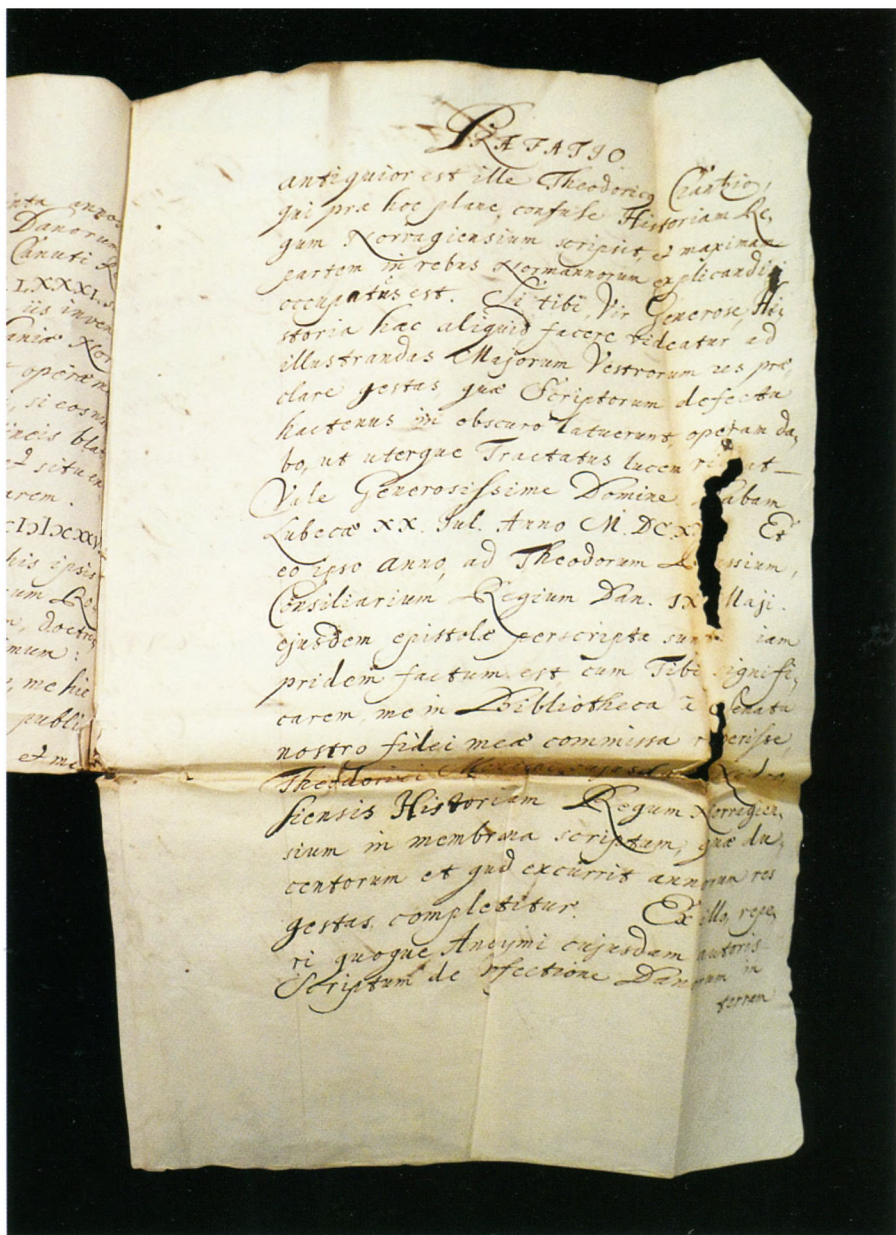 inta annos
Danorum
Canuti R
LXXXI.
iis inven
aniæ Nor
operam
, si eos
incis bla
et situ
arem.
his ipsis
um Ro
, doctri
mum:
, me hic
publi
et me
PRÆFATIO
antiquior est ille Theodoricus
qui præ hoc plane, confuse Historiam Re,
gum Norragiensium scripsit, et maximam
partem in rebus Normannorum explicandis
occupatus est. Si tibi, Vir Generose, Hi,
storia hæc aliquid facere videatur ad
illustrandas Majorum Vestrorum res præ,
clare gestas, quæ Scriptorum defectu
hactenus in obscuro latuerunt, operam da,
bo, ut uterque Tractatus lucem at
Vale Generosissime Domine abam
Lubecæ XX. Jul. Anno M.DCX Et
eo ipso anno, ad Theodorum ssium,
Consiliarium Regium Dan. IX Maji.
ejusdem epistolæ perscripta sunt iam
pridem factum est cum Tibi signifi,
carem, me in Bibliotheca Senatu
nostro fidei meæ commissa r perisse,
Theodorici
siensis Historiam Regum Norragien,
sium in membrana scriptam, quæ du,
centorum et quod excurrit annorum res
gestas completitur. Ex illo, repe,
ri quoque Anoymi cujusdam autoris
Scriptum de pfectione Danorum in
terram